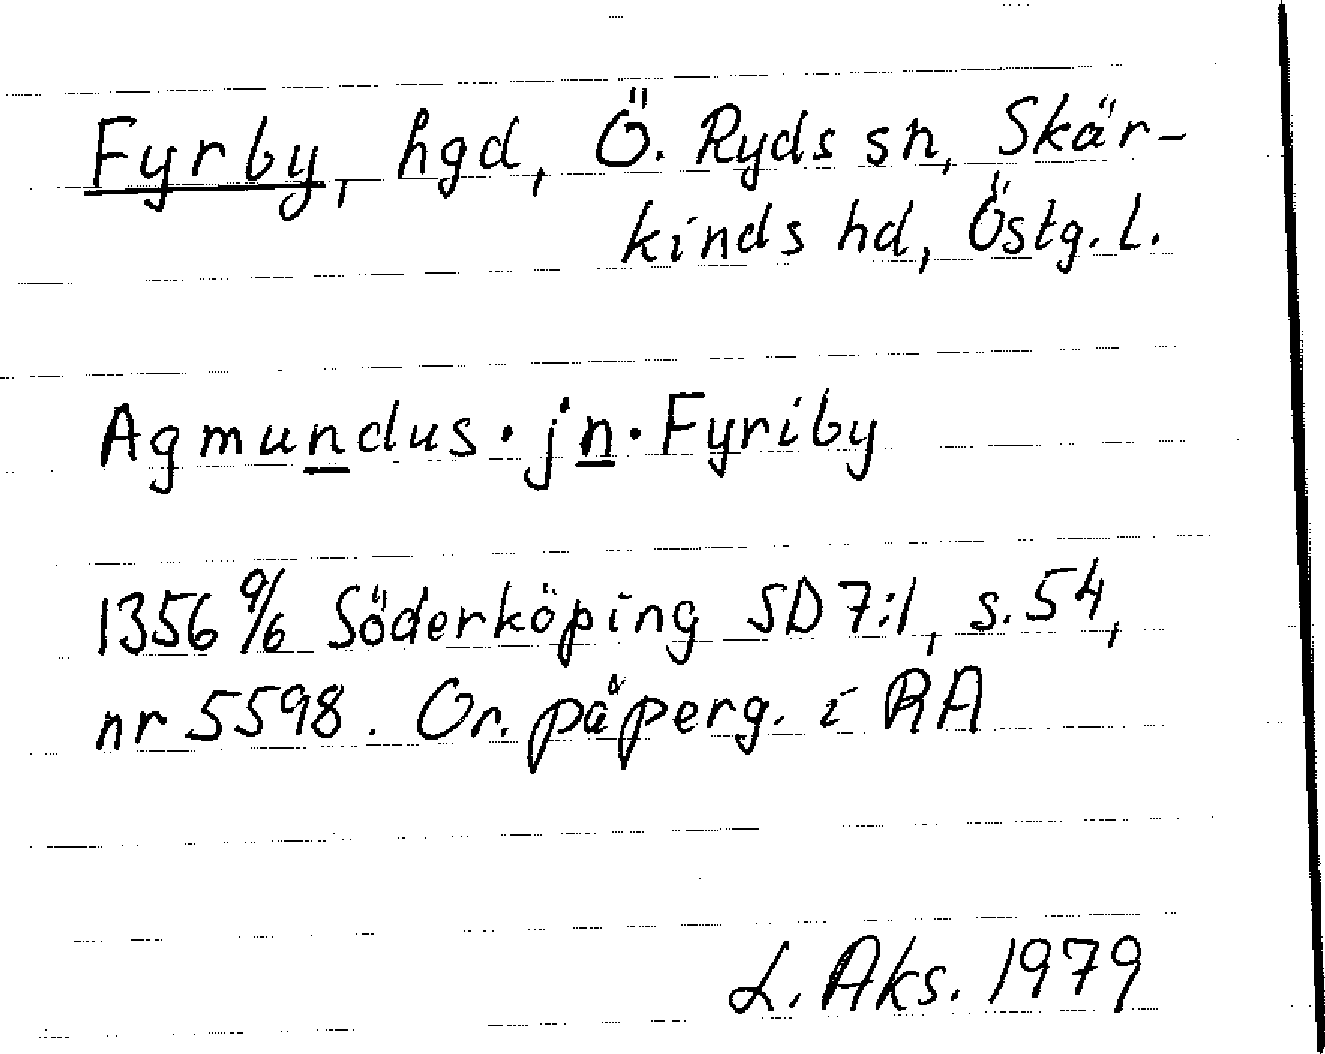 Fyrby, hgd, Ö. Ryds sn, Skär-
kinds hd, Östg. l.
Agmundus · jn · Fyriby
1356 9/6 Söderköping SD 7:1, s. 54,
nr 5598. Or. på perg. i RA
L. Aks. 1979